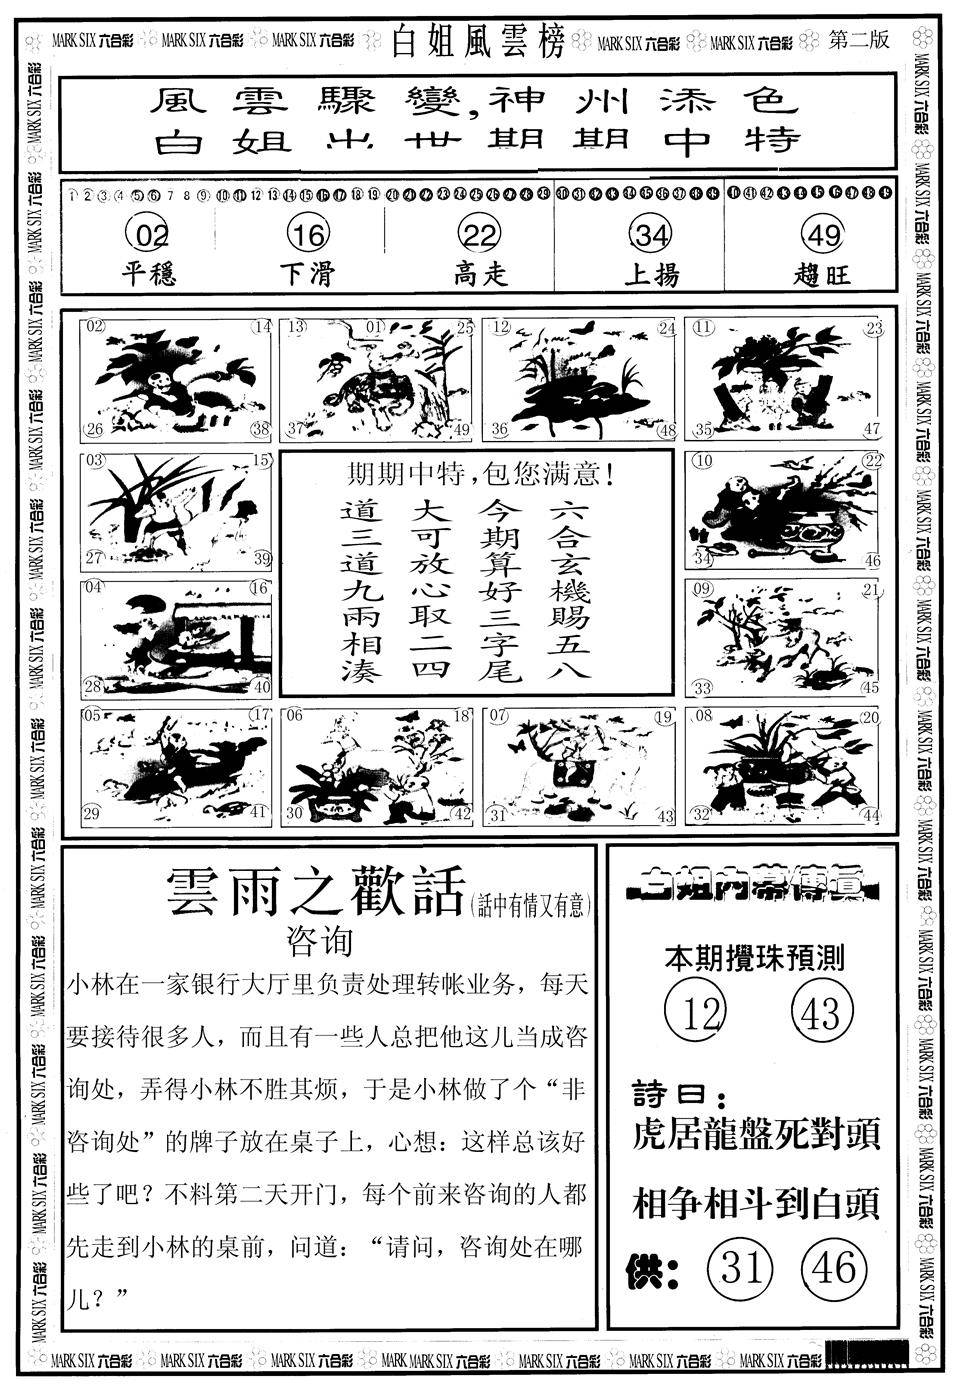 MARK SIX 六合彩 MARK SIX 六合彩 MARK SIX 六合彩 白姐風雲榜 MARK SIX 六合彩 MARK SIX 六合彩 第二版
風雲驟變,神州添色
白姐出世期期中特
1 2 3 4 5 6 7 8 9 10 11 12 13 14 15 16 17 18 19 20 21 22 23 24 25 26 27 28 29 30 31 32 33 34 35 36 37 38 39 40 41 42 43 44 45 46 47 48 49
02 16 22 34 49
平穩 下滑 高走 上揚 趨旺
02 14 13 01 25 12 24 11 23
26 38 37 49 36 48 35 47
03 15
27 39
04 16
28 40
期期中特,包您满意!
六合玄機賜五八
今期算好三字尾
大可放心取二四
道三道九兩相湊
10 22
34 46
09 21
33 45
05 17 06 18 07 19 08 20
29 41 30 42 31 43 32 44
雲雨之歡話(話中有情又有意)
咨询
小林在一家银行大厅里负责处理转帐业务，每天
要接待很多人，而且有一些人总把他这儿当成咨
询处，弄得小林不胜其烦，于是小林做了个“非
咨询处”的牌子放在桌子上，心想：这样总该好
些了吧？不料第二天开门，每个前来咨询的人都
先走到小林的桌前，问道：“请问，咨询处在哪
儿？”
白姐内幕傳真
本期攪珠預測
12 43
詩曰：
虎居龍盤死對頭
相争相斗到白頭
供：31 46
MARK SIX 六合彩 MARK SIX 六合彩 MARK SIX 六合彩 MARK MARK SIX 六合彩 MARK SIX 六合彩 MARK SIX 六合彩 MARK SIX 六合彩